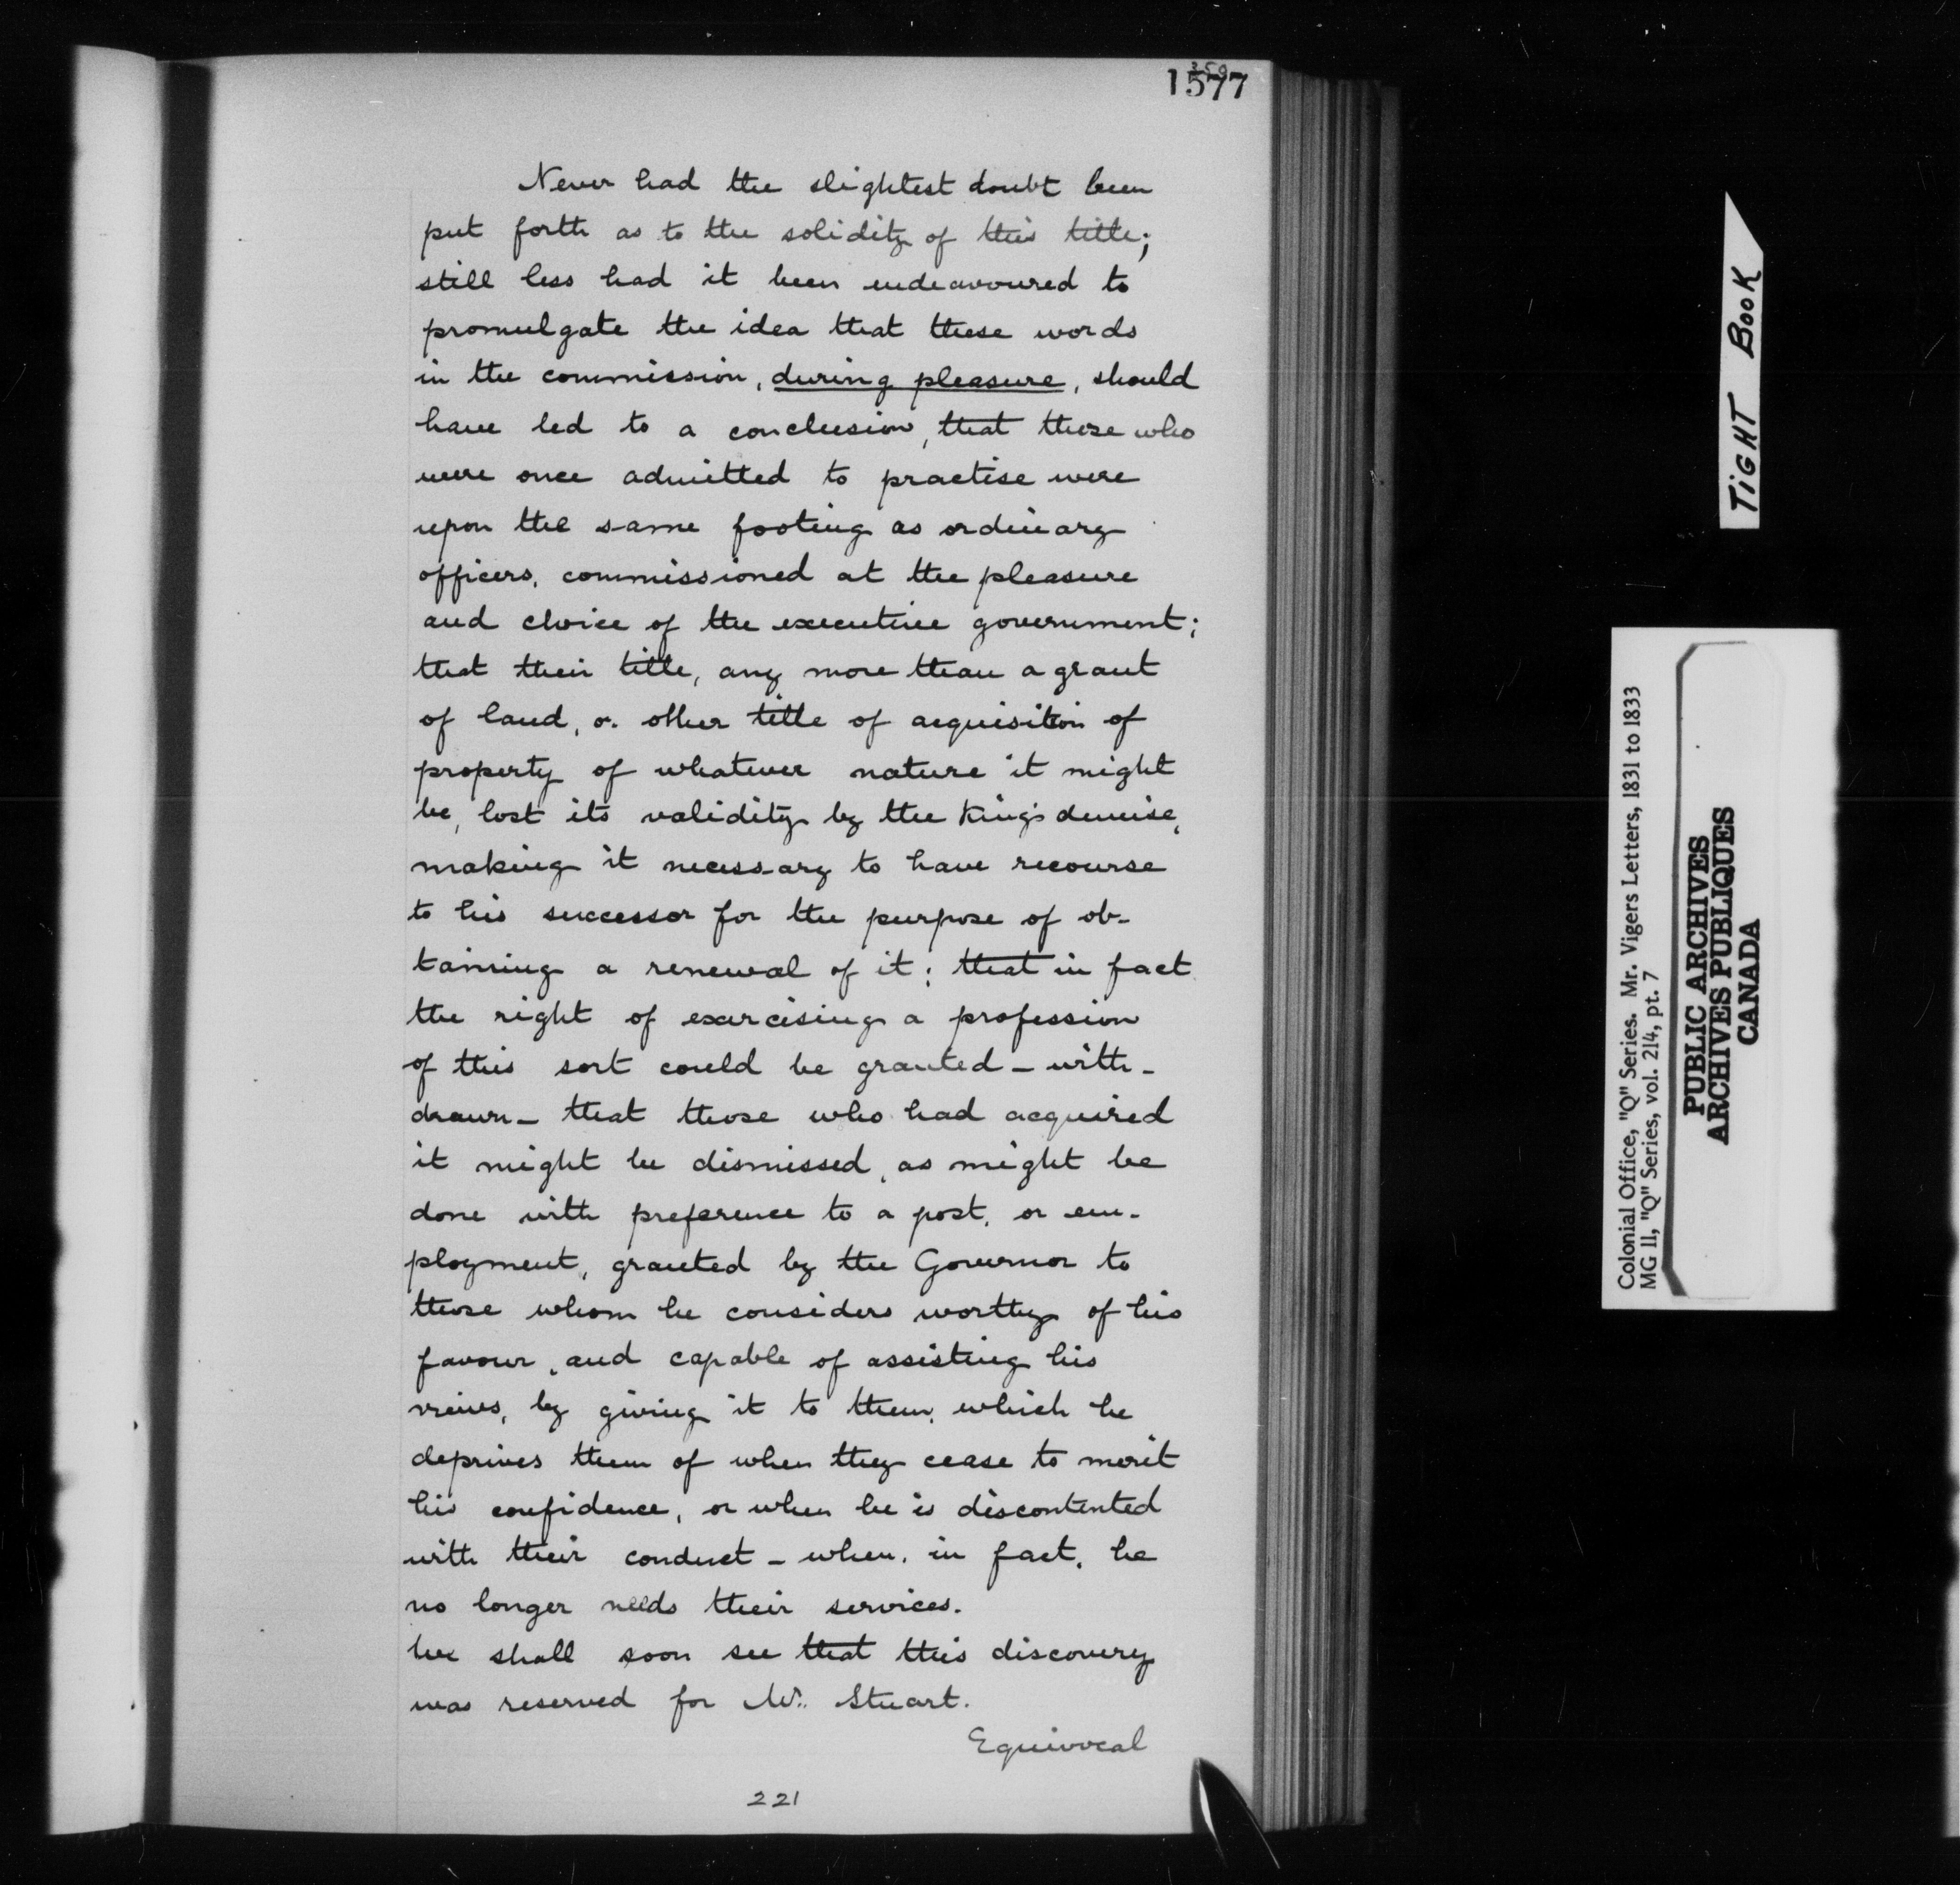 1577
Never had the slightest doubt been
put forth as to the solidity of this title;
still less had it been endeavoured to
promulgate the idea that these words
in the commission, during pleasure, should
have led to a conclusion, that those who
were once admitted to practise were
upon the same footing as ordinary
officers, commissioned at the pleasure
and choice of the executive government;
that their title, any more than a grant
of land, or other title of acquisition of
property of whatever nature it might
be, lost its validity by the King's demise,
making it necessary to have recourse
to his successor for the purpose of ob-
taining a renewal of it; that in fact
the right of exercising a profession
of this sort could be granted - with-
drawn - that those who had acquired
it might be dismissed, as might be
done with preference to a post, or em-
ployment, granted by the Governor to
those whom he considers worthy of his
favour, and capable of assisting his
views, by giving it to them, which he
deprives them of when they cease to merit
his confidence, or when he is discontented
with their conduct - when, in fact, he
no longer needs their services.
We shall soon see that this discovery
was reserved for Mr. Stuart.
Equivocal
221
TIGHT BOOK
Colonial Office, "Q" Series. Mr. Vigers Letters, 1831 to 1833
MG 11, "Q" Series, vol. 214, pt. 7
PUBLIC ARCHIVES
ARCHIVES PUBLIQUES
CANADA